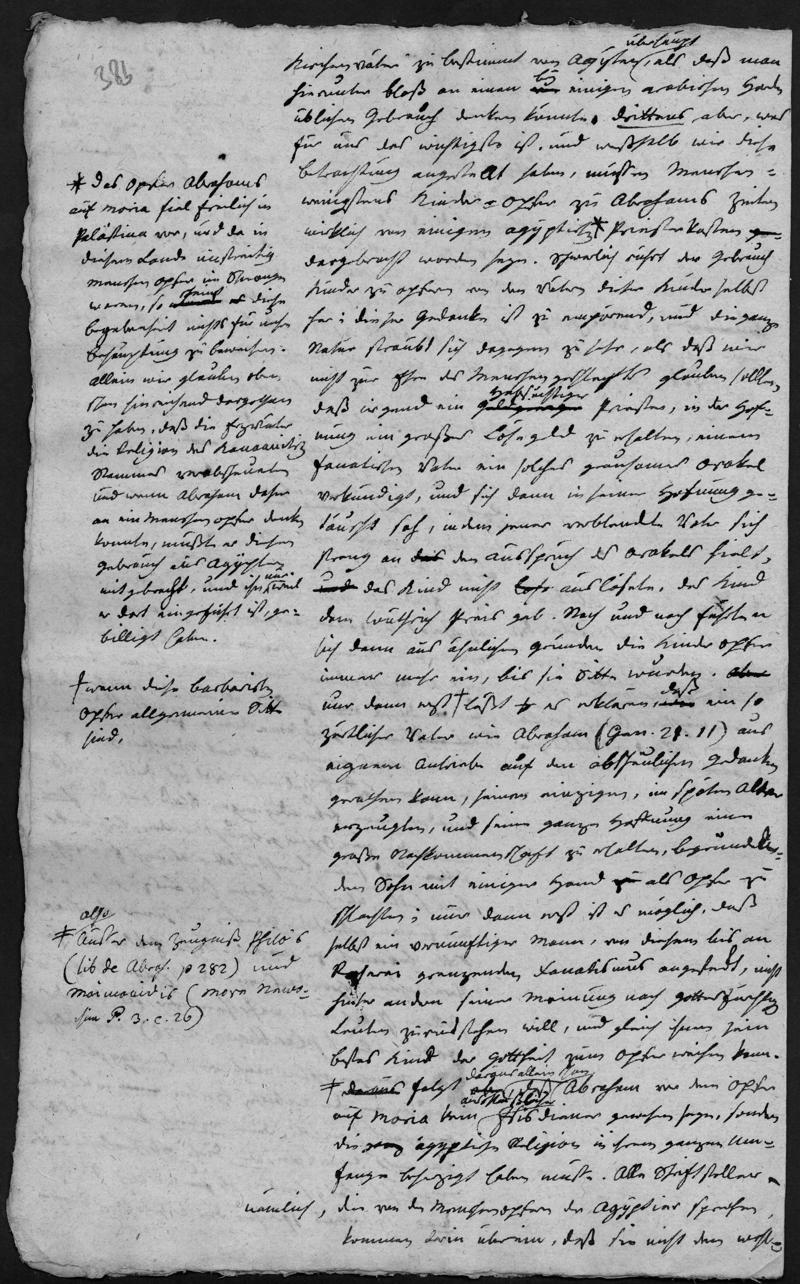 386
überhaupt
Kirchenväter zu bestimmt von Ägypten, als daß man
hierunter bloß an einen bey einigen arabischen Horden
üblichen Gebrauch denken könnte. drittens aber, was
für uns das wichtigste ist, und weßhalb wir diese
betrachtung angestellt haben, müssen Menschen-
wenigstens Kinder-opfer zu Abrahams Zeiten
wirklich von einigen ägyptisch * Priester Kasten
dargebracht worden seyn. Schwerlich rührt der Gebrauch
Kinder zu opfern von den Vätern dieser Kinder selbst
her; dieser Gedanke ist zu empörend, und die ganze
Natur sträubt sich dagegen zu sehr, als daß wir
nicht zur Ehre des Menschengeschlechts glauben sollten,
daß irgend ein habsüchtiger Priester, in der Hof-
nung ein großes Lösegeld zu erhalten, einem
fanatischen Vater ein solches grausames Orakel
verkündigt, und sich dann in seiner Hofnung ge-
täuscht sah, indem jener verblendete Vater sich
streng an das den Ausspruch des Orakels hielt,
und das Kind nicht auslösete, das Kind
dem wüthrich Preis gab. Nach und nach führten
sich dann aus ähnlichen gründen die Kinder opfer
immer mehr ein, bis sie Sitte wurden.
nur dann erst † läßt es erklären, daß ein so
zärtlicher Vater wie Abraham (Gen. 21. 11) aus
eigenem Antriebe auf den abscheulichen gedanken
gerathen kann, seinen einzigen, im späten Alter
erzeugten, und seine ganze Hoffnung eine
große Nachkommenschaft zu erhalten, begründen-
den Sohn mit eigener Hand zu als Opfer zu
schlachten; nur dann erst ist es möglich, daß
selbst ein vernünftiger Mann, von diesem bis an
Raserei grenzenden Fanatismus angesteckt, nicht
hinter andern seiner Meinung nach gottesfürchtigen
Leuten zurückstehen will, und gleich ihnen sein
bestes Kind der Gottheit zum Opfer weihen kann.
‡ daraus folgt daraus allein schon daß Abraham vor dem opfer
auf Moria kein ausschließlicher Isisdiener gewesen seyn, sondern
die ägyptische Religion in ihrem ganzen Um-
fange beherzigt haben müsse. Alle Schriftsteller
nämlich, die von den Menschenopfern der Ägyptier sprechen,
kommen darin überein, daß sie nicht dem wohl-
* das opfer Abrahams
auf Moria fiel freilich in
Palästina vor, und da in
diesem Lande unstreitig
menschen opfer im Schwange
waren, so scheint diese
begebenheit nichts für unsere
behauptung zu beweisen.
allein wir glauben oben
schon hinreichend dargethan
zu haben, daß die Erzväter
die Religion des Kanaanitisch
Stammes verabscheueten
und wenn Abraham daher
an ein menschen opfer denken
konnte, mußte er diesen
gebrauch aus Ägypten
mitgebracht, und ihn nur weil
er dort eingeführt ist, ge-
billigt haben.
† wenn diese barbarischen
Opfer allgemeine Sitte
sind,
also
‡ Ausser dem Zeugniß Philo's
(lib de Abrah. p 282) und
Maimonidis (More Nevo-
chim P. 3. c. 26)